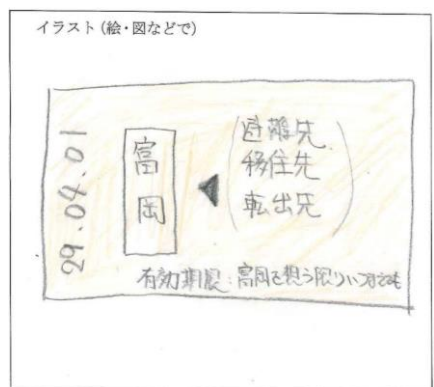 イラスト（絵・図などで）
29.04.01
富岡
◀
避難先
移住先
転出先
有効期限:富岡を想う限りいつまでも